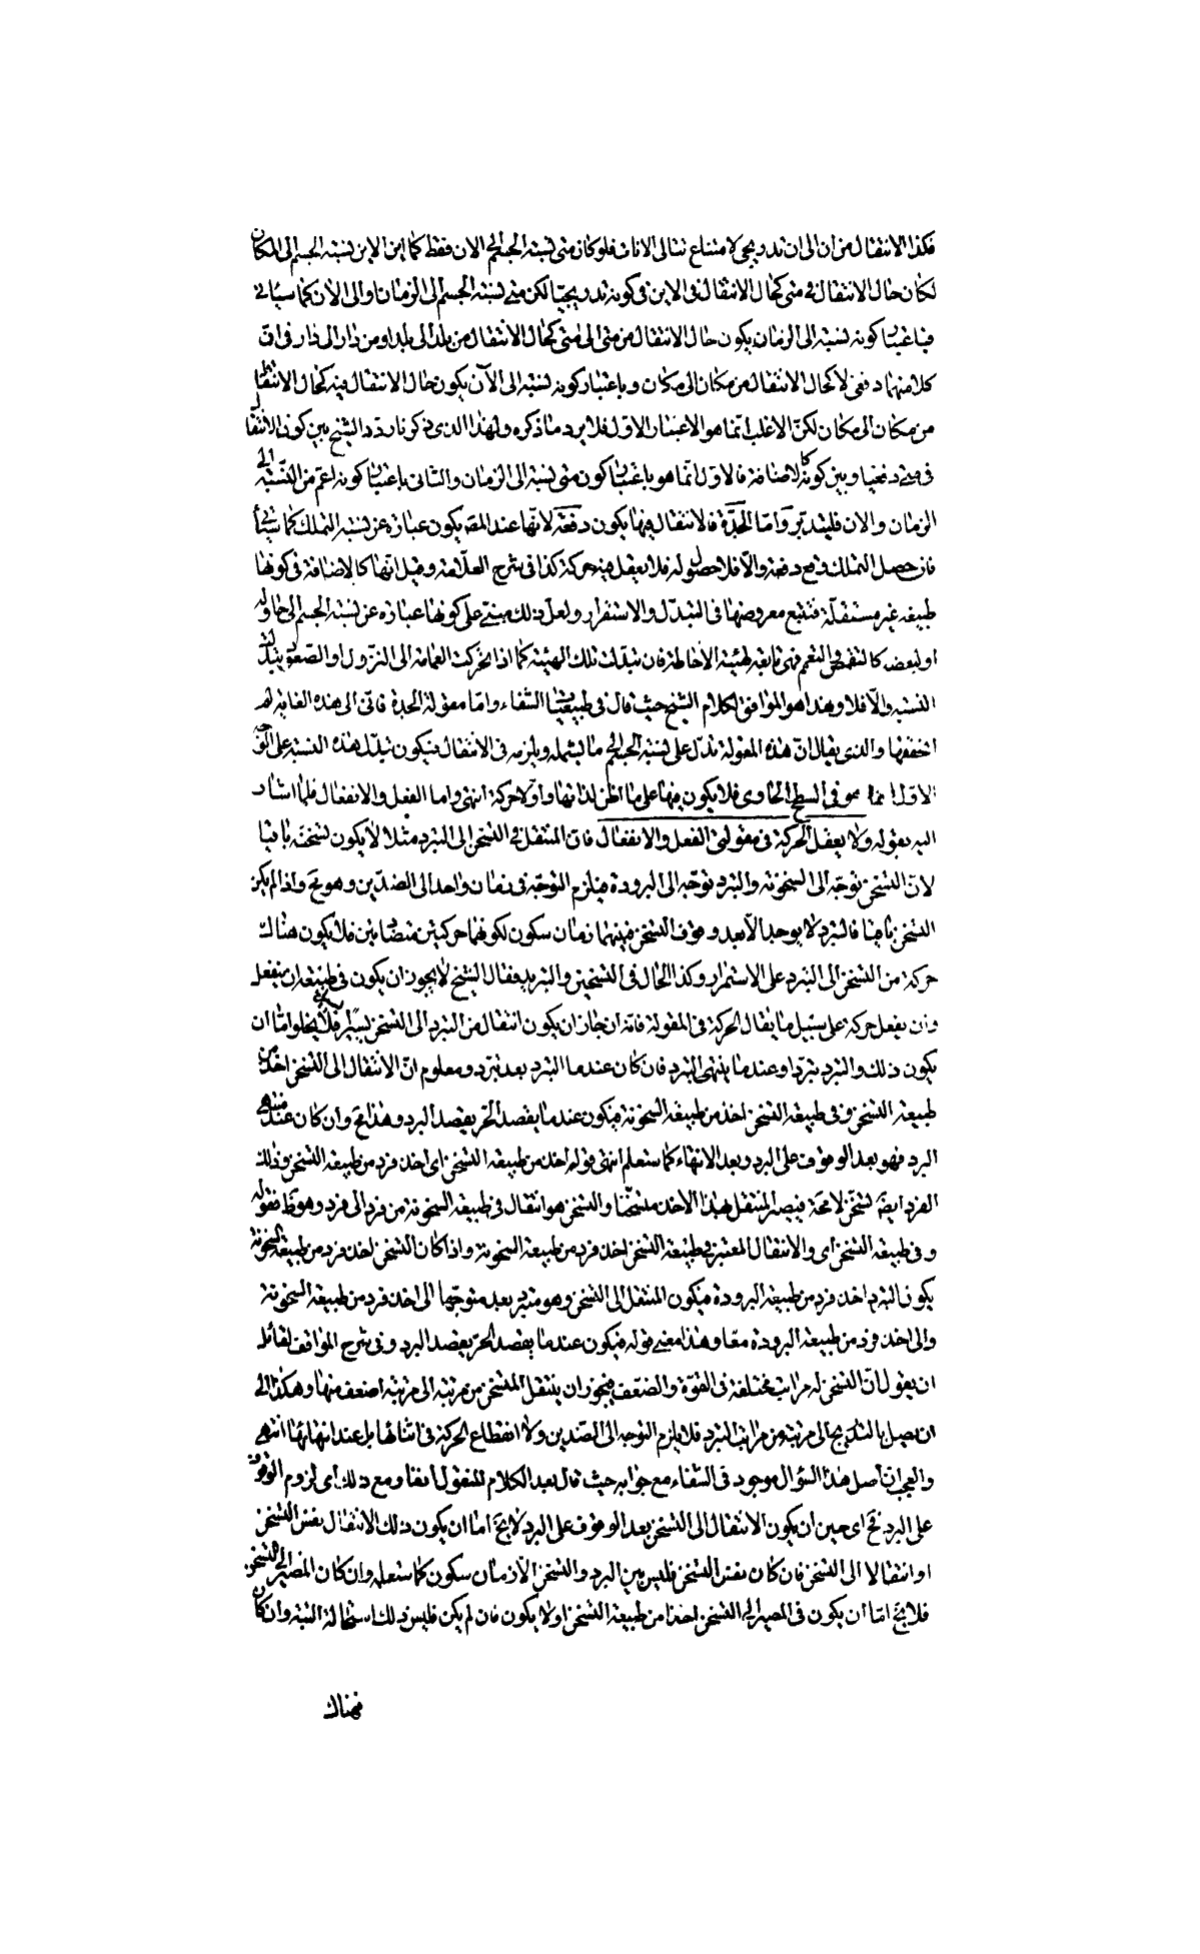 فكذا الانتقال من ان الى ان تدريجى لامتناع تتالى الانات فلو كان متى نسبة الجسم الى الان فقط كما ان الاين نسبة الجسم الى المكان
لكان حال الانتقال فى متى كحال الانتقال فى الاين فى كونه تدريجيا لكن متى نسبة الجسم الى الزمان او الى الان كما سيأتى
فباعتبار كونه نسبة الى الزمان يكون حال الانتقال من متى الى متى كحال الانتقال من بلد الى بلد او من دار الى دار فى ان
كلا منهما دفعى لا كحال الانتقال من مكان الى مكان وباعتبار كونه نسبة الى الآن يكون حال الانتقال فيه كحال الانتقال
من مكان الى مكان لكن الاغلب انما هو الاعتبار الاول فلا يرد ما ذكره ولهذا الذى ذكرنا ردد الشيخ بين كون الانتقال
فى متى دفعيا وبين كونه كالاضافة فالاول انما هو باعتبار كون متى نسبة الى الزمان والثانى باعتبار كونه اعم من النسبة الى
الزمان والان فليتدبر واما الجدة فالانتقال فيها يكون دفعة لانها عند المصّ يكون عبارة عن نسبة التملك كما سيأتى
فان حصل التملك وقع دفعة والّا فلا حصول له فلا يعقل فيه حركة كذا فى شرح العلامة وقيل انها كالاضافة فى كونها
طبيعة غير مستقلة فتتبع معروضها فى التبدل والاستقرار ولعل ذلك مبنى على كونها عبارة عن نسبة الجسم الى حاو له
او لبعضه كالتقمص والتعمم فهى تابعة لهيئة الاحاطة فان تبدلت تلك الهيئة كما اذا تحركت العمامة الى النزول او الصعود يتبدل
النسبة والّا فلا وهذا هو الموافق لكلام الشيخ حيث قال فى طبيعيات الشفاء واما مقولة الجدة فانى الى هذه الغاية لم
اتحققها والذى يقال ان هذه المقولة تدل على نسبة الجسم الى ما يشمله ويلزمه فى الانتقال فيكون تبدل هذه النسبة على الوجه
الاول انما هو فى السطح الحاوى فلا يكون فيها على ما اظن لذاتها واولا حركة انتهى واما الفعل والانفعال فلما اشار
اليه بقوله ولا يعقل الحركة فى مقولتى الفعل والانفعال فان المنتقل فى التسخن الى التبرد مثلا لا يكون تسخنه باقيا
لان التسخن توجه الى السخونة والتبرد توجه الى البرودة فيلزم التوجه فى زمان واحد الى الضدين وهو مح واذا لم يكن
التسخن باقيا فالتبرد لا يوجد الّا بعد وقوف التسخن فبينهما زمان سكون لكونهما حركتين متضادتين فلا يكون هناك
حركة من التسخن الى التبرد على الاستمرار وكذا الحال فى التسخين والتبريد فقال الشيخ لا يجوز ان يكون فى طبيعة ان ينفعل
وان يفعل حركة على سبيل ما يقال الحركة فى المقولة فانه ان جاز ان يكون انتقال من التبرد الى التسخن يسيرا يسيرا فلا يخلوا اما ان
يكون ذلك والتبرد تبرد او عندما ينتهى التبرد فان كان عندما التبرد بعد تبرد ومعلوم ان الانتقال الى التسخن اخذ من
طبيعة التسخن وفى طبيعة التسخن اخذ من طبيعة السخونة فيكون عندما يقصد الحر يقصد البرد وهذا مح وان كان عند منتهى
البرد فهو بعد الوقوف على البرد وبعد الانتهاء كما ستعلم انتهى قوله اخذ من طبيعة التسخن اى اخذ فرد من طبيعة التسخن وذلك
الفرد ايضّ تسخن لا محة فيصير المنتقل بهذا الاخذ متسخنا والتسخن هو انتقال فى طبيعة السخونة من فرد الى فرد وهو ظ فقوله
وفى طبيعة التسخن اى والانتقال المعتبر فى طبيعة التسخن اخذ فرد من طبيعة السخونة واذا كان التسخن اخذ فرد من طبيعة السخونة
يكون التبرد اخذ فرد من طبيعة البرودة فيكون المنتقل الى التسخن وهو متبرد بعد متوجها الى اخذ فرد من طبيعة السخونة
والى اخذ فرد من طبيعة البرودة معا وهذا معنى قوله فيكون عندما يقصد الحر يقصد البرد وفى شرح المواقف لقائل
ان يقول ان التسخن له مراتب مختلفة فى القوة والضعف فيجوز ان ينتقل المتسخن من مرتبة الى مرتبة اضعف منها وهكذا الى
ان يصل بالتدريج الى مرتبة من مراتب التبرد فلا يلزم التوجه الى الضدين ولا انقطاع الحركة فى اثنائها بل عند انتهائها انتهى
والعجب ان اصل هذا السؤال موجود فى الشفاء مع جوابه حيث قال بعد الكلام المنقول انفا ومع ذلك اى لزوم الوقوف
على البرد فح اى حين ان يكون الانتقال الى التسخن بعد الوقوف على البرد لا يخ اما ان يكون ذلك الانتقال نفس التسخن
او انتقالا الى التسخن فان كان نفس التسخن فليس بين البرد والتسخن الّا زمان سكون كما ستعلم وان كان المصير الى التسخن
فلا يخ اما ان يكون فى المصير الى التسخن اخذا من طبيعة التسخن او لا يكون فان لم يكن فليس ذلك استحالة البتة وان كان
فهناك